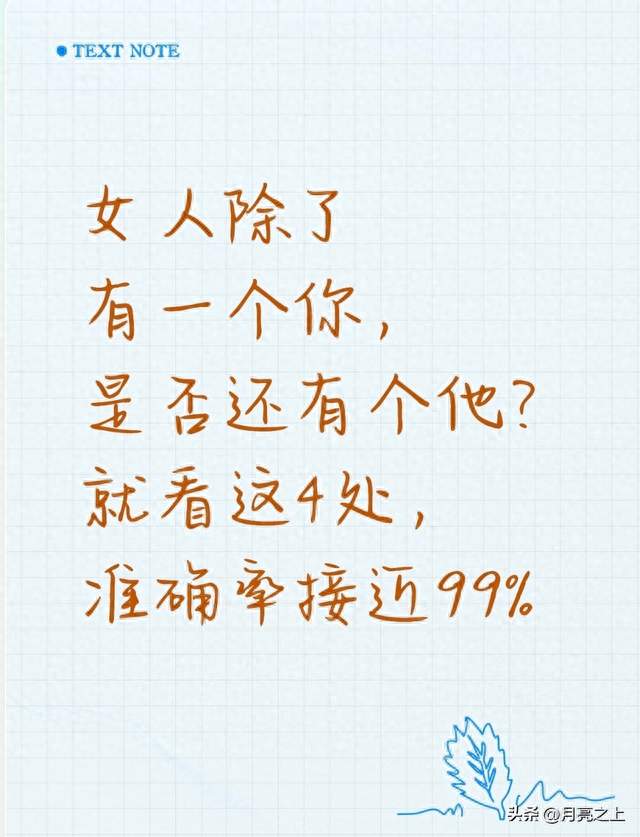 TEXT NOTE
女人除了
有一个你,
是否还有个他?
就看这4处,
准确率接近99%
头条 @月亮之上